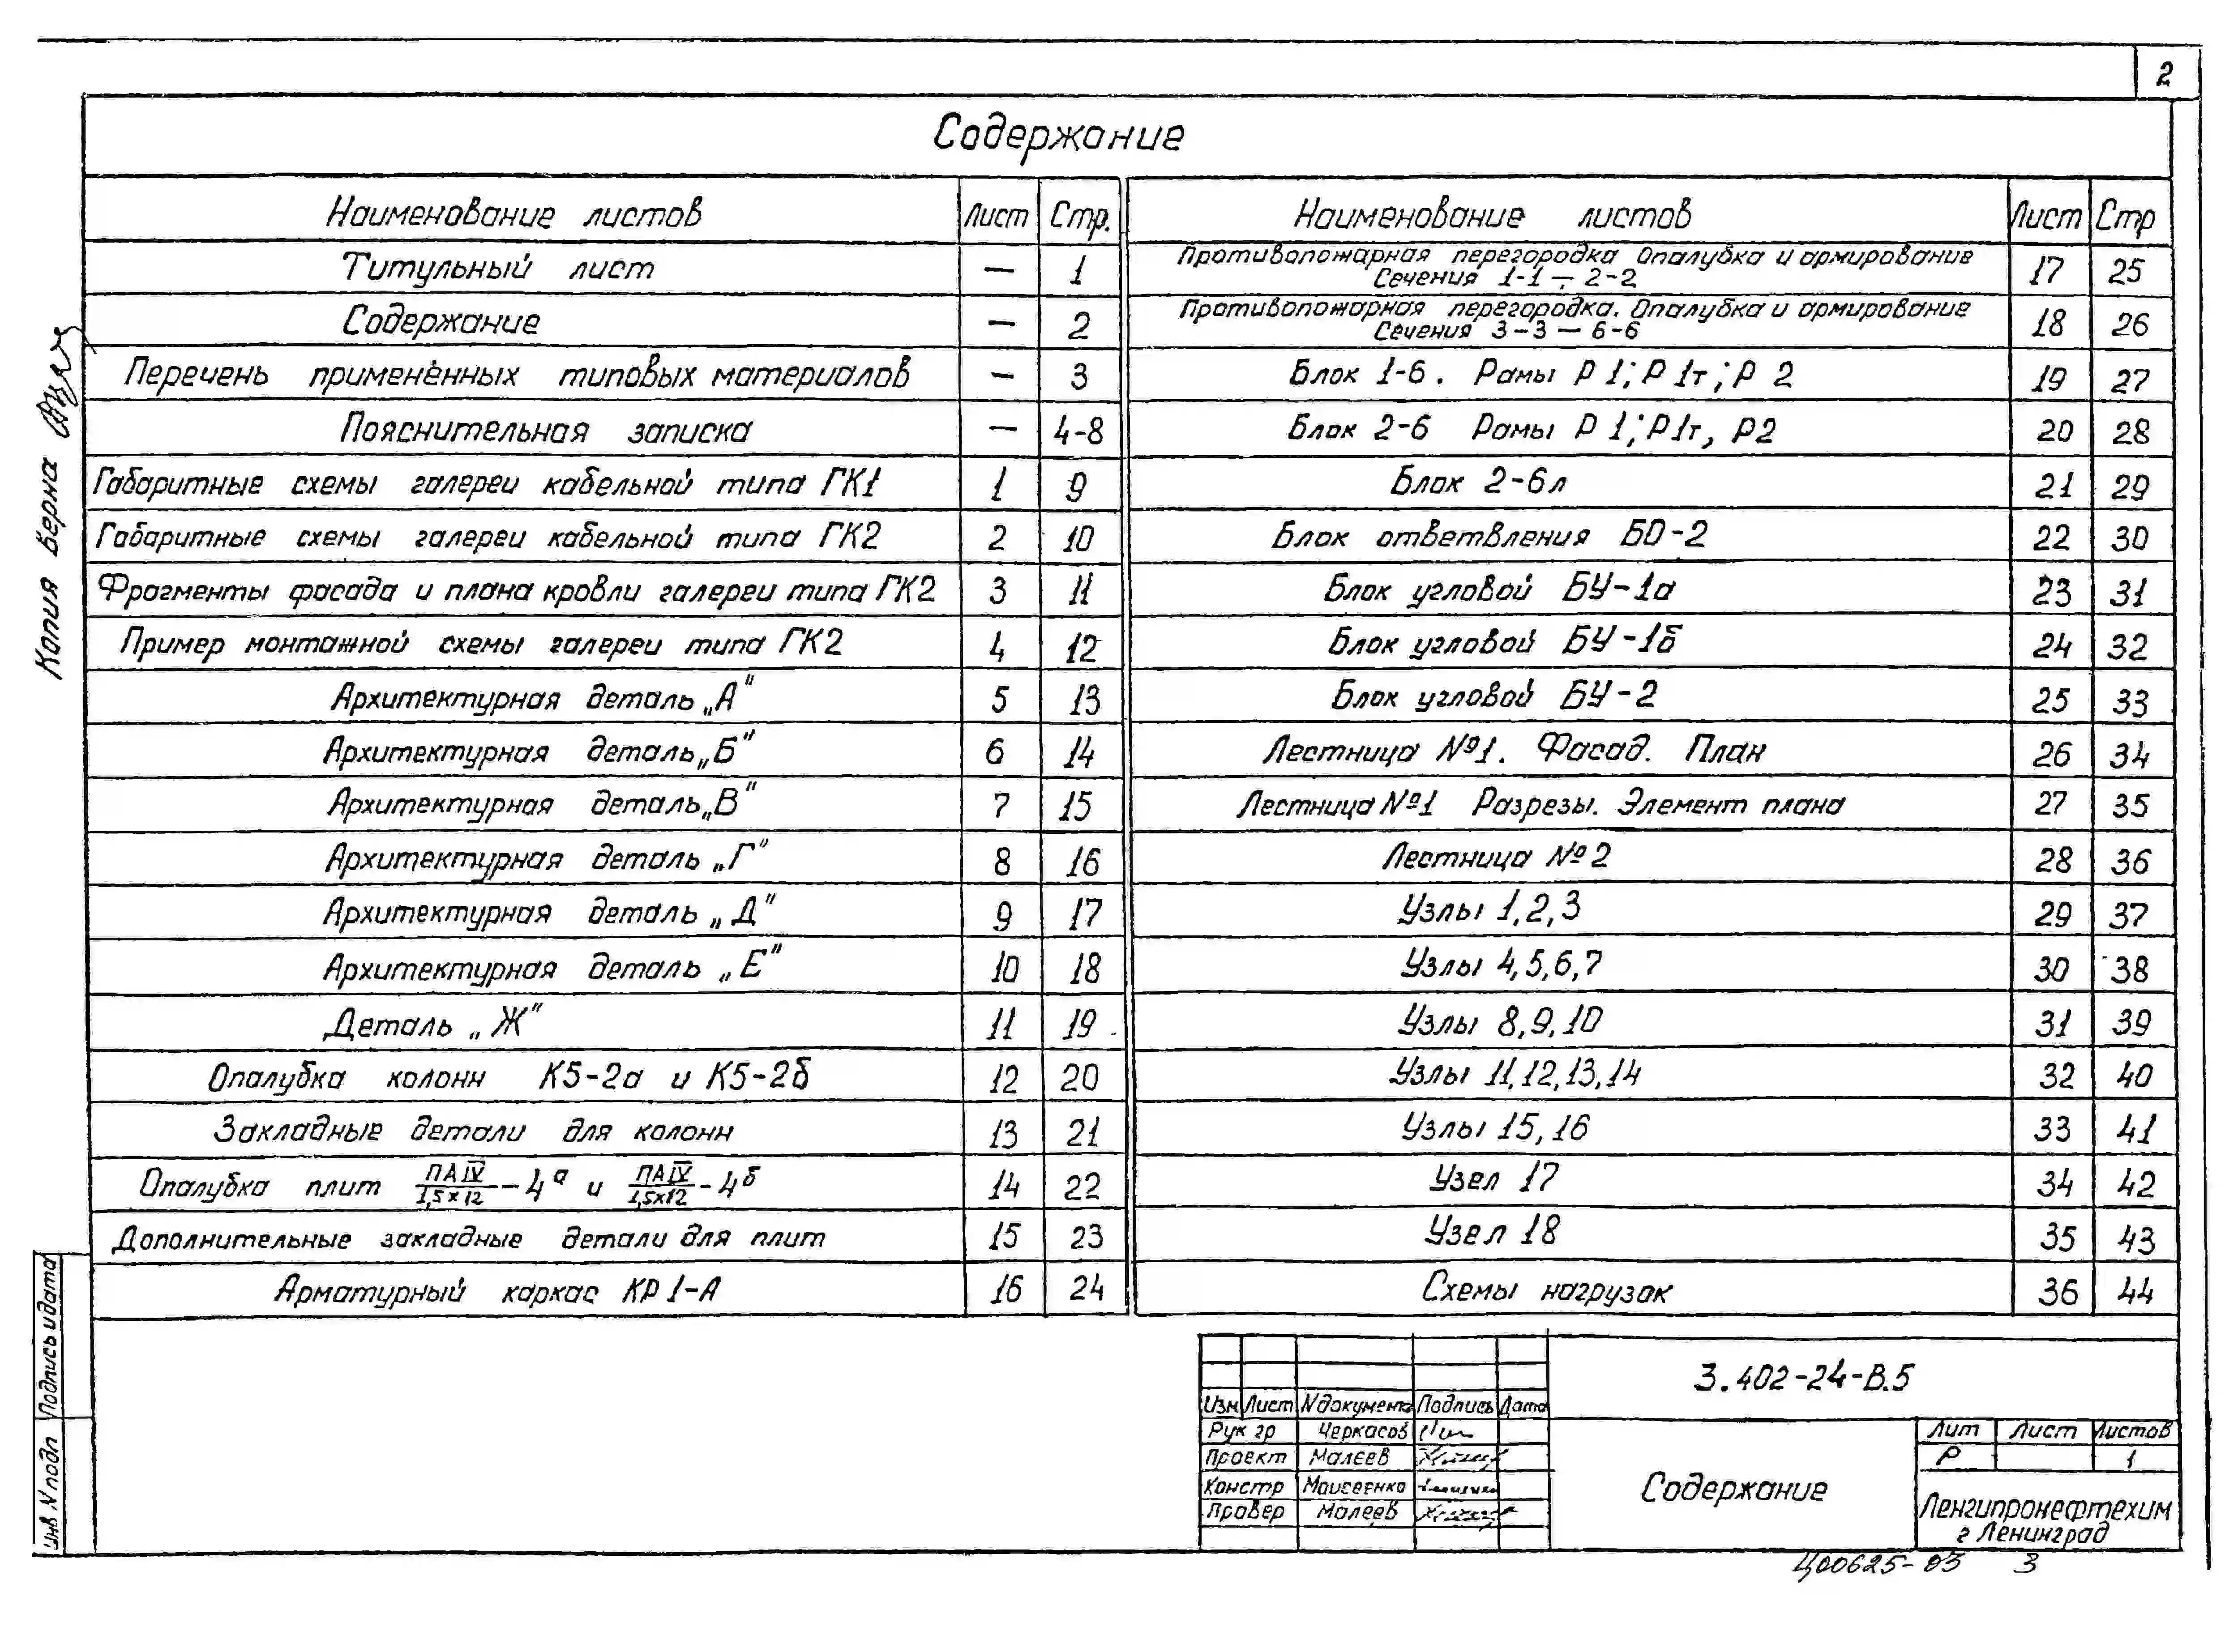 2
Содержание
Наименование листов Лист Стр.
Титульный лист — 1
Содержание — 2
Перечень применённых типовых материалов — 3
Пояснительная записка — 4-8
Габаритные схемы галереи кабельной типа ГК1 1 9
Габаритные схемы галереи кабельной типа ГК2 2 10
Фрагменты фасада и плана кровли галереи типа ГК2 3 11
Пример монтажной схемы галереи типа ГК2 4 12
Архитектурная деталь „А" 5 13
Архитектурная деталь „Б" 6 14
Архитектурная деталь „В" 7 15
Архитектурная деталь „Г" 8 16
Архитектурная деталь „Д" 9 17
Архитектурная деталь „Е" 10 18
Деталь „Ж" 11 19
Опалубка колонн К5-2а и К5-2б 12 20
Закладные детали для колонн 13 21
Опалубка плит ПАIV/1,5х12 -4а и ПАIV/1,5х12 -4б 14 22
Дополнительные закладные детали для плит 15 23
Арматурный каркас КР1-А 16 24
Наименование листов Лист Стр
Противопожарная перегородка Опалубка и армирование
Сечения 1-1 ÷ 2-2 17 25
Противопожарная перегородка. Опалубка и армирование
Сечения 3-3 — 6-6 18 26
Блок 1-6. Рамы Р1; Р1т; Р2 19 27
Блок 2-6 Рамы Р1; Р1т, Р2 20 28
Блок 2-6л 21 29
Блок ответвления БО-2 22 30
Блок угловой БУ-1а 23 31
Блок угловой БУ-1б 24 32
Блок угловой БУ-2 25 33
Лестница №1. Фасад. План 26 34
Лестница №1 Разрезы. Элемент плана 27 35
Лестница №2 28 36
Узлы 1,2,3 29 37
Узлы 4,5,6,7 30 38
Узлы 8,9,10 31 39
Узлы 11,12,13,14 32 40
Узлы 15,16 33 41
Узел 17 34 42
Узел 18 35 43
Схемы нагрузок 36 44
Копия верна
Подпись и дата
Инв N подл
3.402-24-В.5
Изм Лист N документа Подпись Дата
Рук гр Черкасов
Проект Малеев
Констр Моисеенко
Провер Малеев
Содержание
Лит Лист Листов
Р 1
Ленгипронефтехим
г Ленинград
Ц00625-03 3